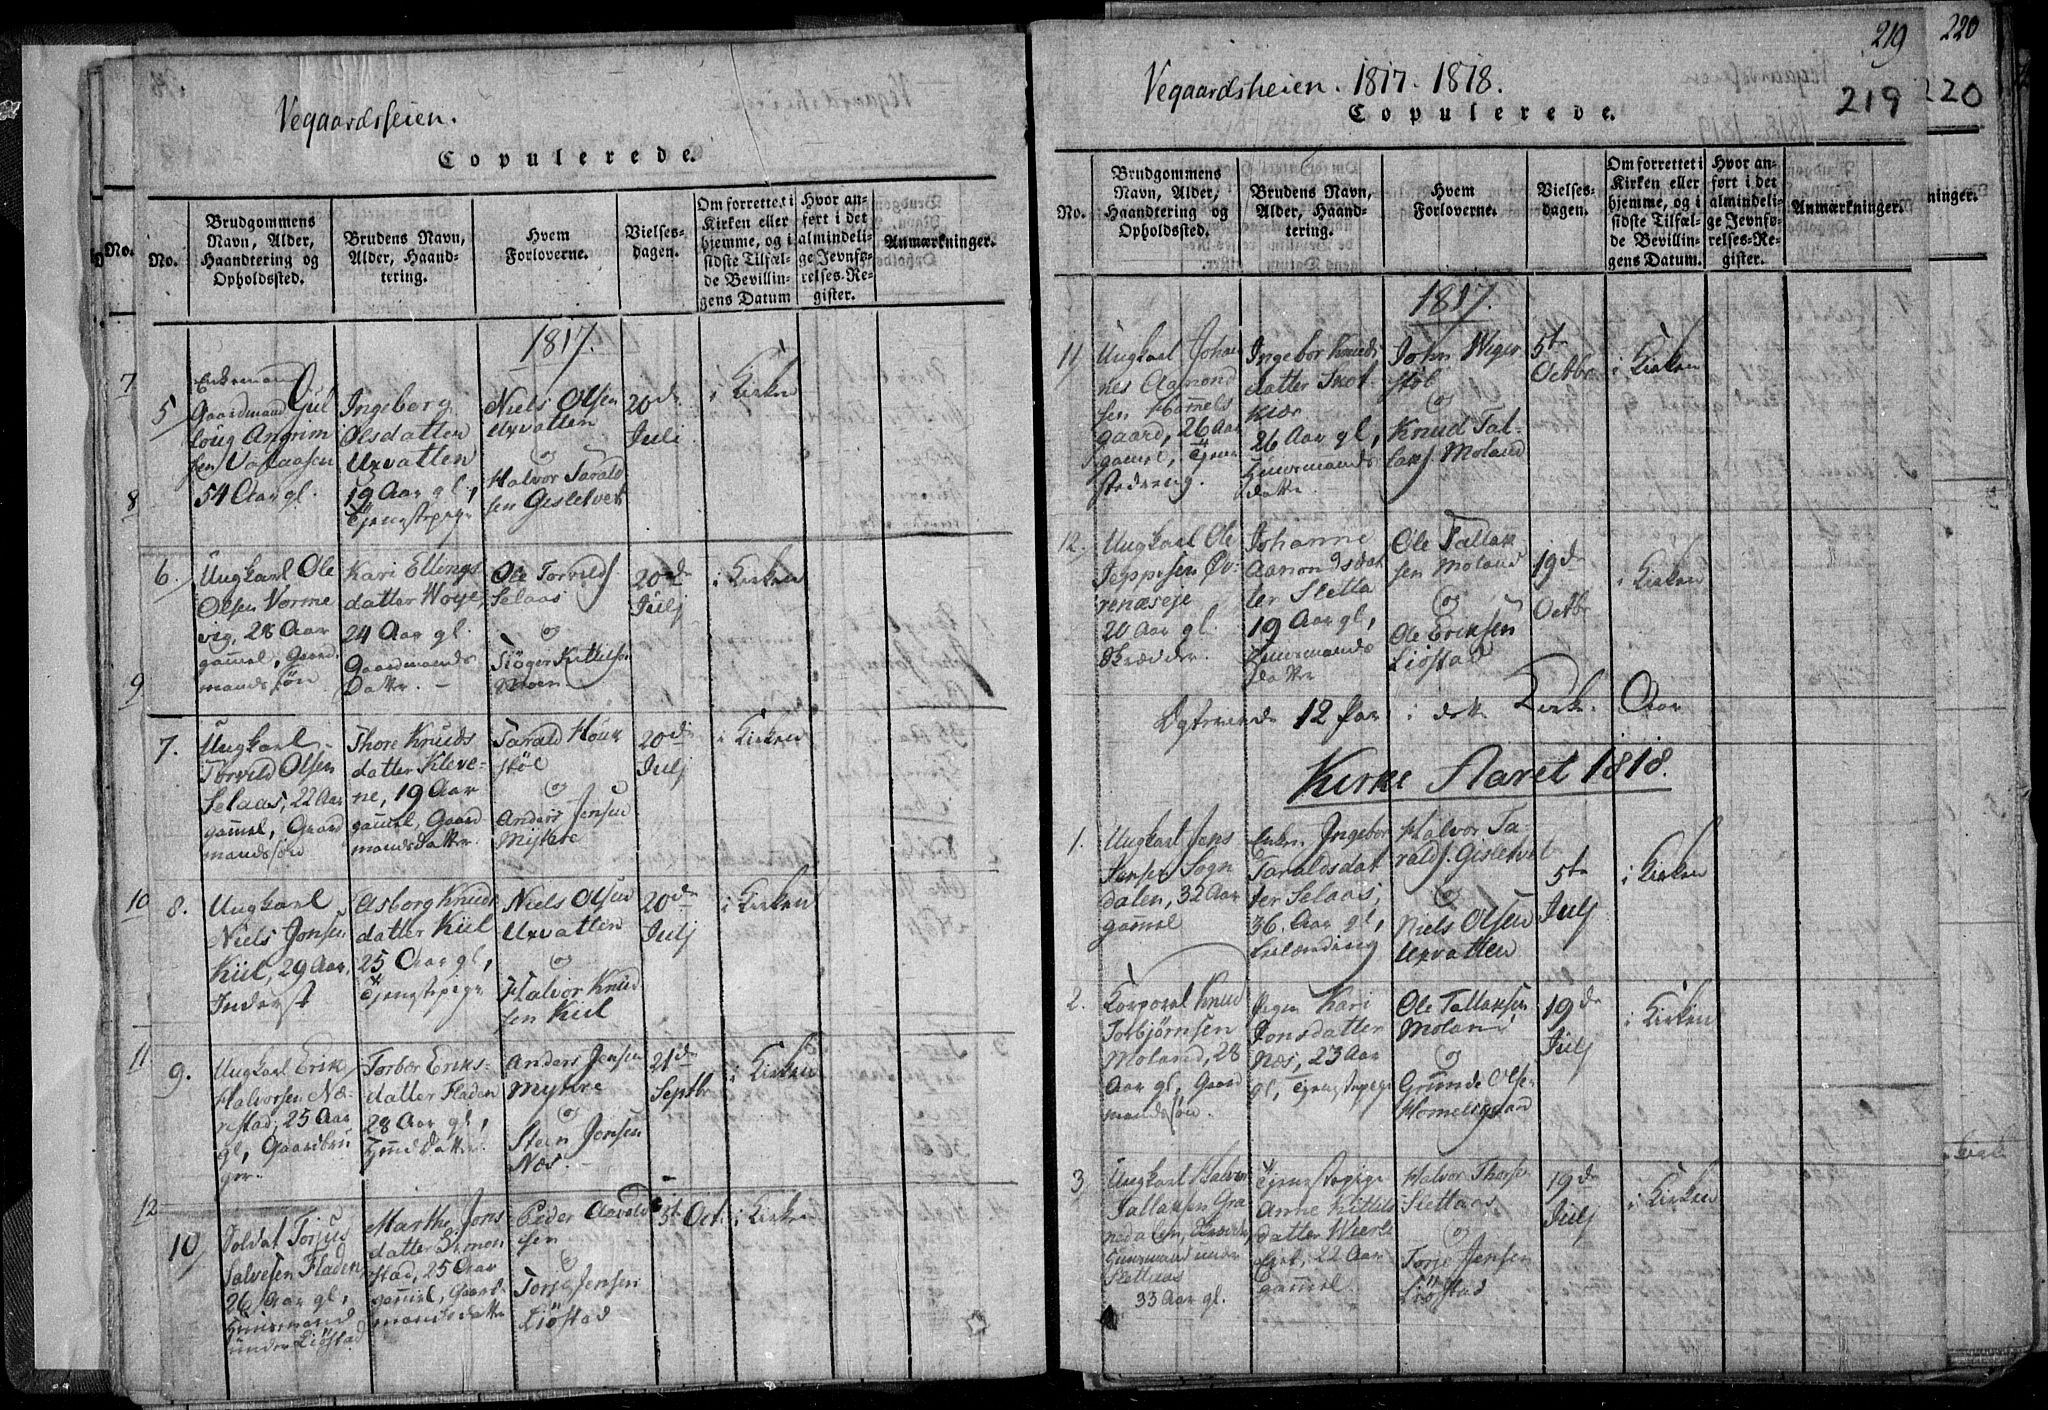 Vegaardsheien.
Copulerede.
No.
No.
Brudgommens
Navn, Alder,
Haandtering og
Opholdssted.
Brudens Navn,
Alder, Haand-
tering.
Hvem
Forloverne.
Vielses-
dagen.
Om forrettet i
Kirken eller
hjemme, og i
sidste Tilfæl-
de Bevillin-
gens Datum
Hvor an-
ført i det
almindeli-
ge Jevnfø-
relses-Re-
gister.
Anmærkninger.
1817.
7
8
9
10
11
12
5
Enkemand
Gaardmand Gul
loug Angrim
sen Vaaaasen
54 Aar gl.
Ingeborg
Olsdatter
Uxvatten
19 Aar gl,
Tjenstepige
Niels Olsen
Uxvatten
og
Halvor Tarald
sen Gisletvet
20de
Juli
i Kirken
6.
Ungkarl Ole
Olsen Vorme
vig, 28 Aar
gammel, Gaard
mands søn
Kari Ellings
datter Woje,
24 Aar gl.
Gaardmands
Datter.
Ole Torvilds
Selaas
og
Siöger Kittelsen
Moen.
20de
Julj
i Kirken
7.
Ungkarl
Torvild Olsen
Selaas, 22 Aar
gammel, Gaard
mandssøn
Thore Knuds
datter Kleve-
ne, 19 Aar
gammel, Gaard
mandsdatter.
Tarald Houk
støl
og
Anders Jensen
Mykere
20de
Julj
i Kirken
8.
Ungkarl
Niels Jonsen
Kiil, 29 Aar,
Inderst
Asborg Knuds
datter Kiil
25 Aar gl,
Tjenstepige
Niels Olsen
Uxvatten
og
Halvor Knud
sen Kiil
20de
Julj
i Kirken
9.
Ungkarl Erik
Halvorsen Næ-
restad, 25 Aar
gl, Gaardbru
ger.
Torbor Eriks-
datter Fladen
28 Aar gl,
Huusmands Datter.
Anders Jensen
Mykere
og
Steen Jensen
Næs.
21de
Septbr
i Kirken
10
Soldat Torjus
Salvesen Fladen,
26 Aar gl,
Huusmand
under Liøstad
Marthe Jons
datter Simon
stad, 25 Aar
gammel, Gaard
mandsdatter
Peder Aavold
sen
og
Torje Jensen
Liøstad
5te Oct.
i Kirken
219
220
Vegaardsheien. 1817. 1818.
219
220
Copulerede.
No.
Brudgommens
Navn, Alder,
Haandtering og
Opholdssted.
Brudens Navn,
Alder, Haand-
tering.
Hvem
Forloverne.
Vielses-
dagen.
Om forrettet i
Kirken eller
hjemme, og i
sidste Tilfæl-
de Bevillin-
gens Datum.
Hvor an-
ført i det
almindeli-
ge Jevnfø-
relses-Re-
gister.
Anmærkninger.
ninger.
1817.
11
Ungkarl Johan
nes Aamond
sen Hommels
gaard, 26 Aar
gamel, Tjene
stedreng.
Ingebor Knuds
datter Skot-
kiær
26 Aar gl,
Huusmands
datter.
John Weger
støl
og
Knud Tal-
laks. Moland
5te
Octbr
i Kirken
12.
Ungkarl Ole
Jeppesen Øv-
renæseje
20 Aar gl.
Skrædder.
Johanne
Aamondsdat
ter Sletta
19 Aar gl,
Huusmands
datter
Ole Tallak
sen Moland
og
Ole Eriksen
Liøstad
19de
Octbr
i Kirken
12 Par i dette Kirke Aar
Kirke Aaret 1818.
1.
Ungkarl Jens
Jensen Sogn
dalen, 32 Aar
gammel
Enken Ingebor
Taraldsdat
ter Selaas,
36. Aar gl,
Halvor Ta
ralds. Gisletvet
og
Niels Olsen
Uxvatten
5te
Julj
i Kirken
2.
Korporal Knud
Torbjørnsen
Moland, 28
Aar gl, Gaard
mandssøn.
Pigen Kari
Jonsdatter
Næs, 23 Aar
gl, Tjenstepige
Ole Tallaksen
Moland
og
Grunde Olsen
Homelsgaard
19de
Julj
i Kirken
3
Ungkarl Halvor
Tallaksen Gra
nedalen,
Huusmand under
Sletaas
33 Aar gl.
Tjenstepige
Anne Kittils
datter Weerls
22 Aar
gammel
Halvor Thors.
Sletaas
og
Torje Jensen
Liøstad
19de
Julj
i Kirken